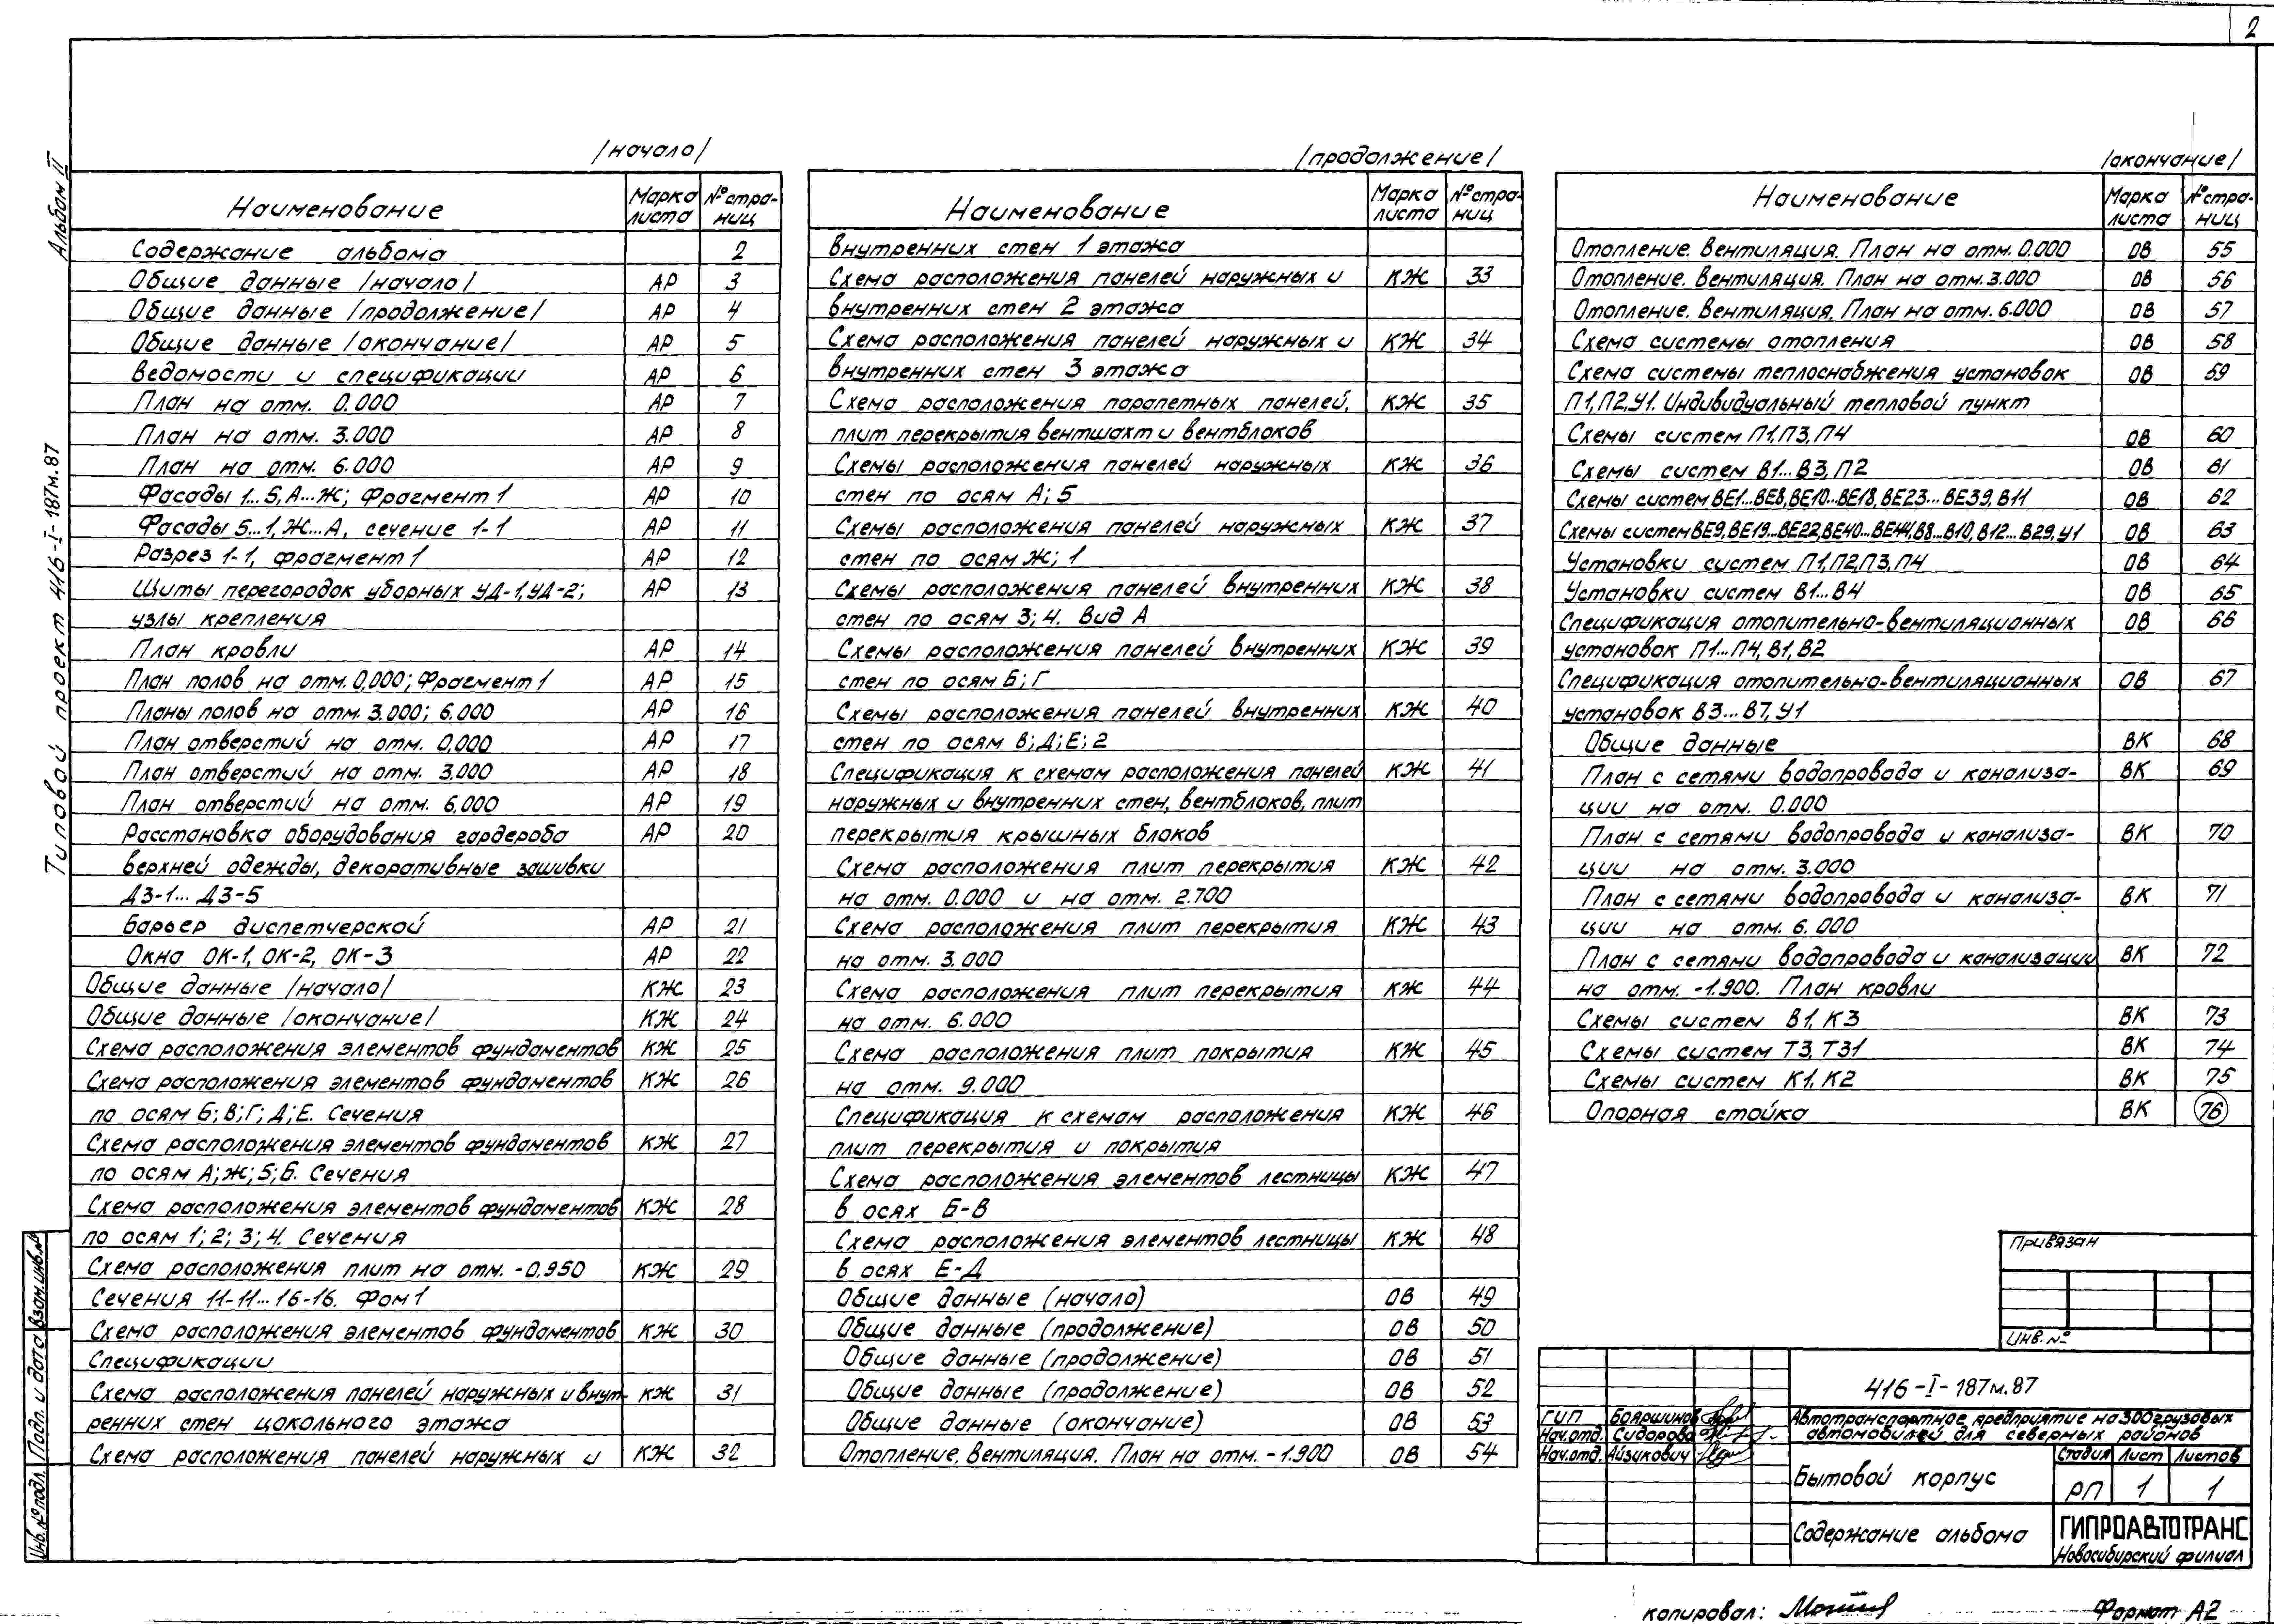 2
Альбом II
Типовой проект 416-I-187м.87
/начало/
Наименование Марка листа № страниц
Содержание альбома 2
Общие данные /начало/ АР 3
Общие данные /продолжение/ АР 4
Общие данные /окончание/ АР 5
Ведомости и спецификации АР 6
План на отм. 0.000 АР 7
План на отм. 3.000 АР 8
План на отм. 6.000 АР 9
Фасады 1...5, А...Ж; Фрагмент 1 АР 10
Фасады 5...1, Ж...А, сечение 1-1 АР 11
Разрез 1-1, фрагмент 1 АР 12
Щиты перегородок уборных УД-1, УД-2; АР 13
узлы крепления
План кровли АР 14
План полов на отм. 0,000; Фрагмент 1 АР 15
Планы полов на отм. 3.000; 6.000 АР 16
План отверстий на отм. 0,000 АР 17
План отверстий на отм. 3,000 АР 18
План отверстий на отм. 6.000 АР 19
Расстановка оборудования гардероба АР 20
верхней одежды, декоративные зашивки
ДЗ-1... ДЗ-5
Барьер диспетчерской АР 21
Окна ОК-1, ОК-2, ОК-3 АР 22
Общие данные /начало/ КЖ 23
Общие данные /окончание/ КЖ 24
Схема расположения элементов фундаментов КЖ 25
Схема расположения элементов фундаментов КЖ 26
по осям Б; В; Г; Д; Е. Сечения
Схема расположения элементов фундаментов КЖ 27
по осям А; Ж; 5; 6. Сечения
Схема расположения элементов фундаментов КЖ 28
по осям 1; 2; 3; 4. Сечения
Схема расположения плит на отм. -0.950 КЖ 29
Сечения 11-11... 16-16. Фом 1
Схема расположения элементов фундаментов КЖ 30
Спецификации
Схема расположения панелей наружных и внут- КЖ 31
ренних стен цокольного этажа
Схема расположения панелей наружных и КЖ 32
/продолжение/
Наименование Марка листа № страниц
внутренних стен 1 этажа
Схема расположения панелей наружных и КЖ 33
внутренних стен 2 этажа
Схема расположения панелей наружных и КЖ 34
внутренних стен 3 этажа
Схема расположения парапетных панелей, КЖ 35
плит перекрытия вентшахт и вентблоков
Схемы расположения панелей наружных КЖ 36
стен по осям А; 5
Схемы расположения панелей наружных КЖ 37
стен по осям Ж; 1
Схемы расположения панелей внутренних КЖ 38
стен по осям 3; 4. Вид А
Схемы расположения панелей внутренних КЖ 39
стен по осям Б; Г
Схемы расположения панелей внутренних КЖ 40
стен по осям В; Д; Е; 2
Спецификация к схемам расположения панелей КЖ 41
наружных и внутренних стен, вентблоков, плит
перекрытия крышных блоков
Схема расположения плит перекрытия КЖ 42
на отм. 0.000 и на отм. 2.700
Схема расположения плит перекрытия КЖ 43
на отм. 3.000
Схема расположения плит перекрытия КЖ 44
на отм. 6.000
Схема расположения плит покрытия КЖ 45
на отм. 9.000
Спецификация к схемам расположения КЖ 46
плит перекрытия и покрытия
Схема расположения элементов лестницы КЖ 47
в осях Б-В
Схема расположения элементов лестницы КЖ 48
в осях Е-Д
Общие данные (начало) ОВ 49
Общие данные (продолжение) ОВ 50
Общие данные (продолжение) ОВ 51
Общие данные (продолжение) ОВ 52
Общие данные (окончание) ОВ 53
Отопление. Вентиляция. План на отм. -1.900 ОВ 54
/окончание/
Наименование Марка листа № страниц
Отопление. Вентиляция. План на отм. 0.000 ОВ 55
Отопление. Вентиляция. План на отм. 3.000 ОВ 56
Отопление. Вентиляция. План на отм. 6.000 ОВ 57
Схема системы отопления ОВ 58
Схема системы теплоснабжения установок ОВ 59
П1, П2, У1. Индивидуальный тепловой пункт
Схемы систем П1, П3, П4 ОВ 60
Схемы систем В1...В3, П2 ОВ 61
Схемы систем ВЕ1...ВЕ8, ВЕ10...ВЕ18, ВЕ23...ВЕ39, В11 ОВ 62
Схемы систем ВЕ9, ВЕ19...ВЕ22, ВЕ40...ВЕ44, В8...В10, В12...В29, У1 ОВ 63
Установки систем П1, П2, П3, П4 ОВ 64
Установки систем В1...В4 ОВ 65
Спецификация отопительно-вентиляционных ОВ 66
установок П1...П4, В1, В2
Спецификация отопительно-вентиляционных ОВ 67
установок В3...В7, У1
Общие данные ВК 68
План с сетями водопровода и канализа- ВК 69
ции на отм. 0.000
План с сетями водопровода и канализа- ВК 70
ции на отм. 3.000
План с сетями водопровода и канализа- ВК 71
ции на отм. 6.000
План с сетями водопровода и канализации ВК 72
на отм. -1.900. План кровли
Схемы систем В1, К3 ВК 73
Схемы систем Т3, Т31 ВК 74
Схемы систем К1, К2 ВК 75
Опорная стойка ВК 76
Привязан
Инв. №
416-I-187м.87
ГИП Бояршинов
Нач.отд. Сидорова
Нач.отд. Айзикович
Автотранспортное предприятие на 300 грузовых
автомобилей для северных районов
Бытовой корпус
Стадия Лист Листов
РП 1 1
Содержание альбома
ГИПРОАВТОТРАНС
Новосибирский филиал
Инв. № подл. Подп. и дата Взам. инв. №
копировал:
Формат А2